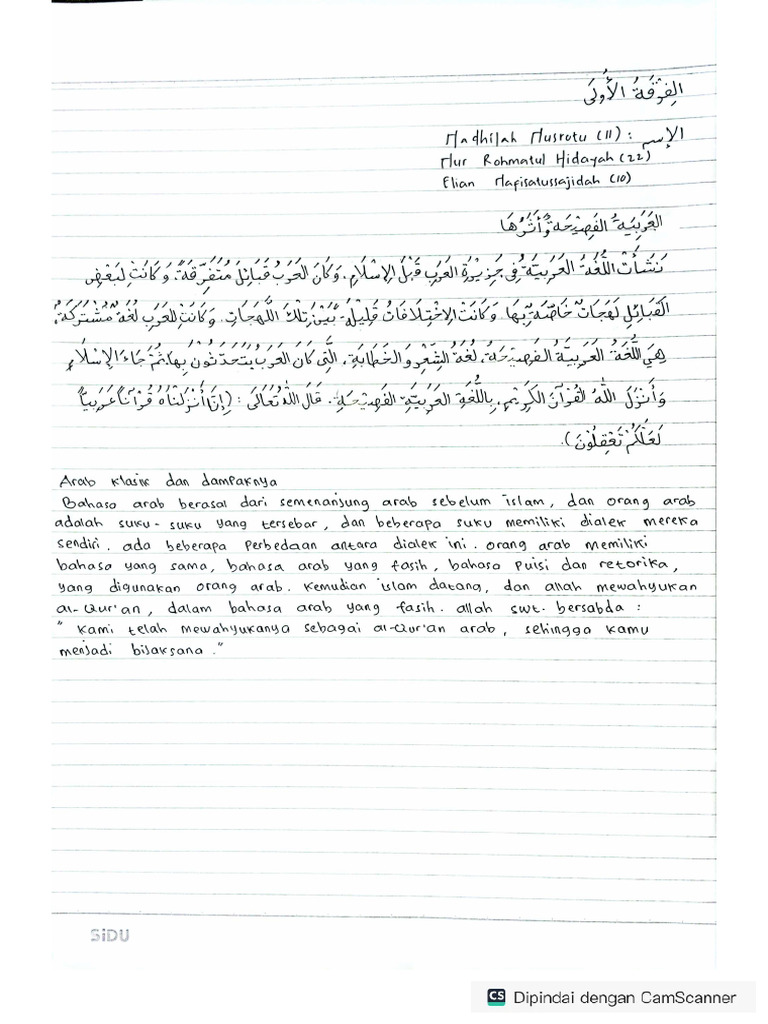 الفِرْقَةُ الأُولَى
الإسم : Nadhilah Nusrotu (11)
Nur Rohmatul Hidayah (22)
Elian Nafisatussajidah (10)
العَرَبِيَّةُ الفَصِيْحَةُ وَأَثَرُهَا
نَشَأَتْ اللُّغَةُ العَرَبِيَّةُ فِى جَزِيْرَةِ العَرَبِ قَبْلَ الإِسْلَامِ. وَكَانَ العَرَبُ قَبَائِلَ مُتَفَرِّقَةً، وَكَانَتْ لِبَعْضِ
القَبَائِلِ لَهَجَاتٌ خَاصَّةٌ بِهَا وَكَانَتْ الإِخْتِلَافَاتُ قَلِيْلَةً بَيْنَ تِلْكَ اللَّهَجَاتِ. وَكَانَتْ لِلْعَرَبِ لُغَةٌ مُشْتَرَكَةٌ،
هِيَ اللُّغَةُ العَرَبِيَّةُ الفَصِيْحَةُ، لُغَةُ الشِّعْرِ وَالخَطَابَةِ، الَّتِى كَانَ العَرَبُ يَتَحَدَّثُونَ بِهَا. ثُمَّ جَاءَ الإِسْلَامُ
وَأَنْزَلَ اللّٰهُ القُرْآنَ الكَرِيْمَ، بِاللُّغَةِ العَرَبِيَّةِ الفَصِيْحَةِ. قَالَ اللّٰهُ تَعَالَى : (إِنَّا أَنْزَلْنَاهُ قُرْآنًا عَرَبِيًّا
لَعَلَّكُمْ تَعْقِلُوْنَ).
Arab klasik dan dampaknya
Bahasa arab berasal dari semenanjung arab sebelum islam, dan orang arab
adalah suku-suku yang tersebar, dan beberapa suku memiliki dialek mereka
sendiri. ada beberapa perbedaan antara dialek ini. orang arab memiliki
bahasa yang sama, bahasa arab yang fasih, bahasa puisi dan retorika,
yang digunakan orang arab. kemudian islam datang, dan allah mewahyukan
al-Qur'an, dalam bahasa arab yang fasih. allah swt. bersabda :
" kami telah mewahyukanya sebagai al-Qur'an arab, sehingga kamu
menjadi bijaksana."
SiDU
CS Dipindai dengan CamScanner